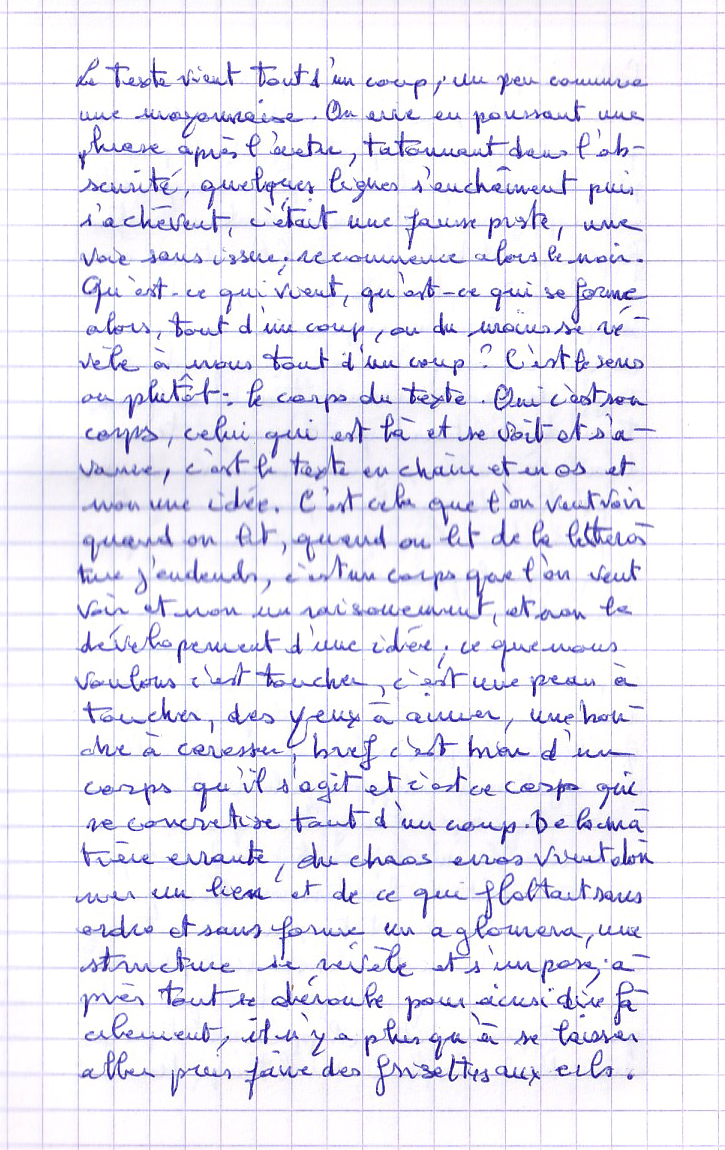 Le texte vient tout d'un coup, un peu comme
une mayonnaise. On erre en poussant une
phrase après l'autre, tatonnant dans l'ob-
scurité, quelques lignes s'enchaînent puis
s'achèvent, c'était une fausse piste, une
voie sans issue; recommence alors le noir.
Qu'est-ce qui vient, qu'est-ce qui se forme
alors, tout d'un coup, ou du moins se ré-
vèle à nous tout d'un coup? C'est le sens
ou plutôt: le corps du texte. Oui c'est son
corps, celui qui est là et se voit et s'a-
vance, c'est le texte en chair et en os et
non une idée. C'est cela que l'on veut voir
quand on lit, quand on lit de la littéra
ture j'entends, c'est un corps que l'on veut
voir et non un raisonnement, et non le
dévelopement d'une idée; ce que nous
voulons c'est toucher, c'est une peau à
toucher, des yeux à aimer, une bou-
che à caresser, bref c'est bien d'un
corps qu'il s'agit et c'est ce corps qui
se concretise tout d'un coup. De la ma
tière errante, du chaos eros vient don
ner un lien et de ce qui flottait sans
ordre et sans forme un aglomera, une
structure se révèle et s'impose; a-
près tout se déroule pour ainsi dire fa-
cilement, il n'y a plus qu'à se laisser
aller puis faire des frisettes aux cils.